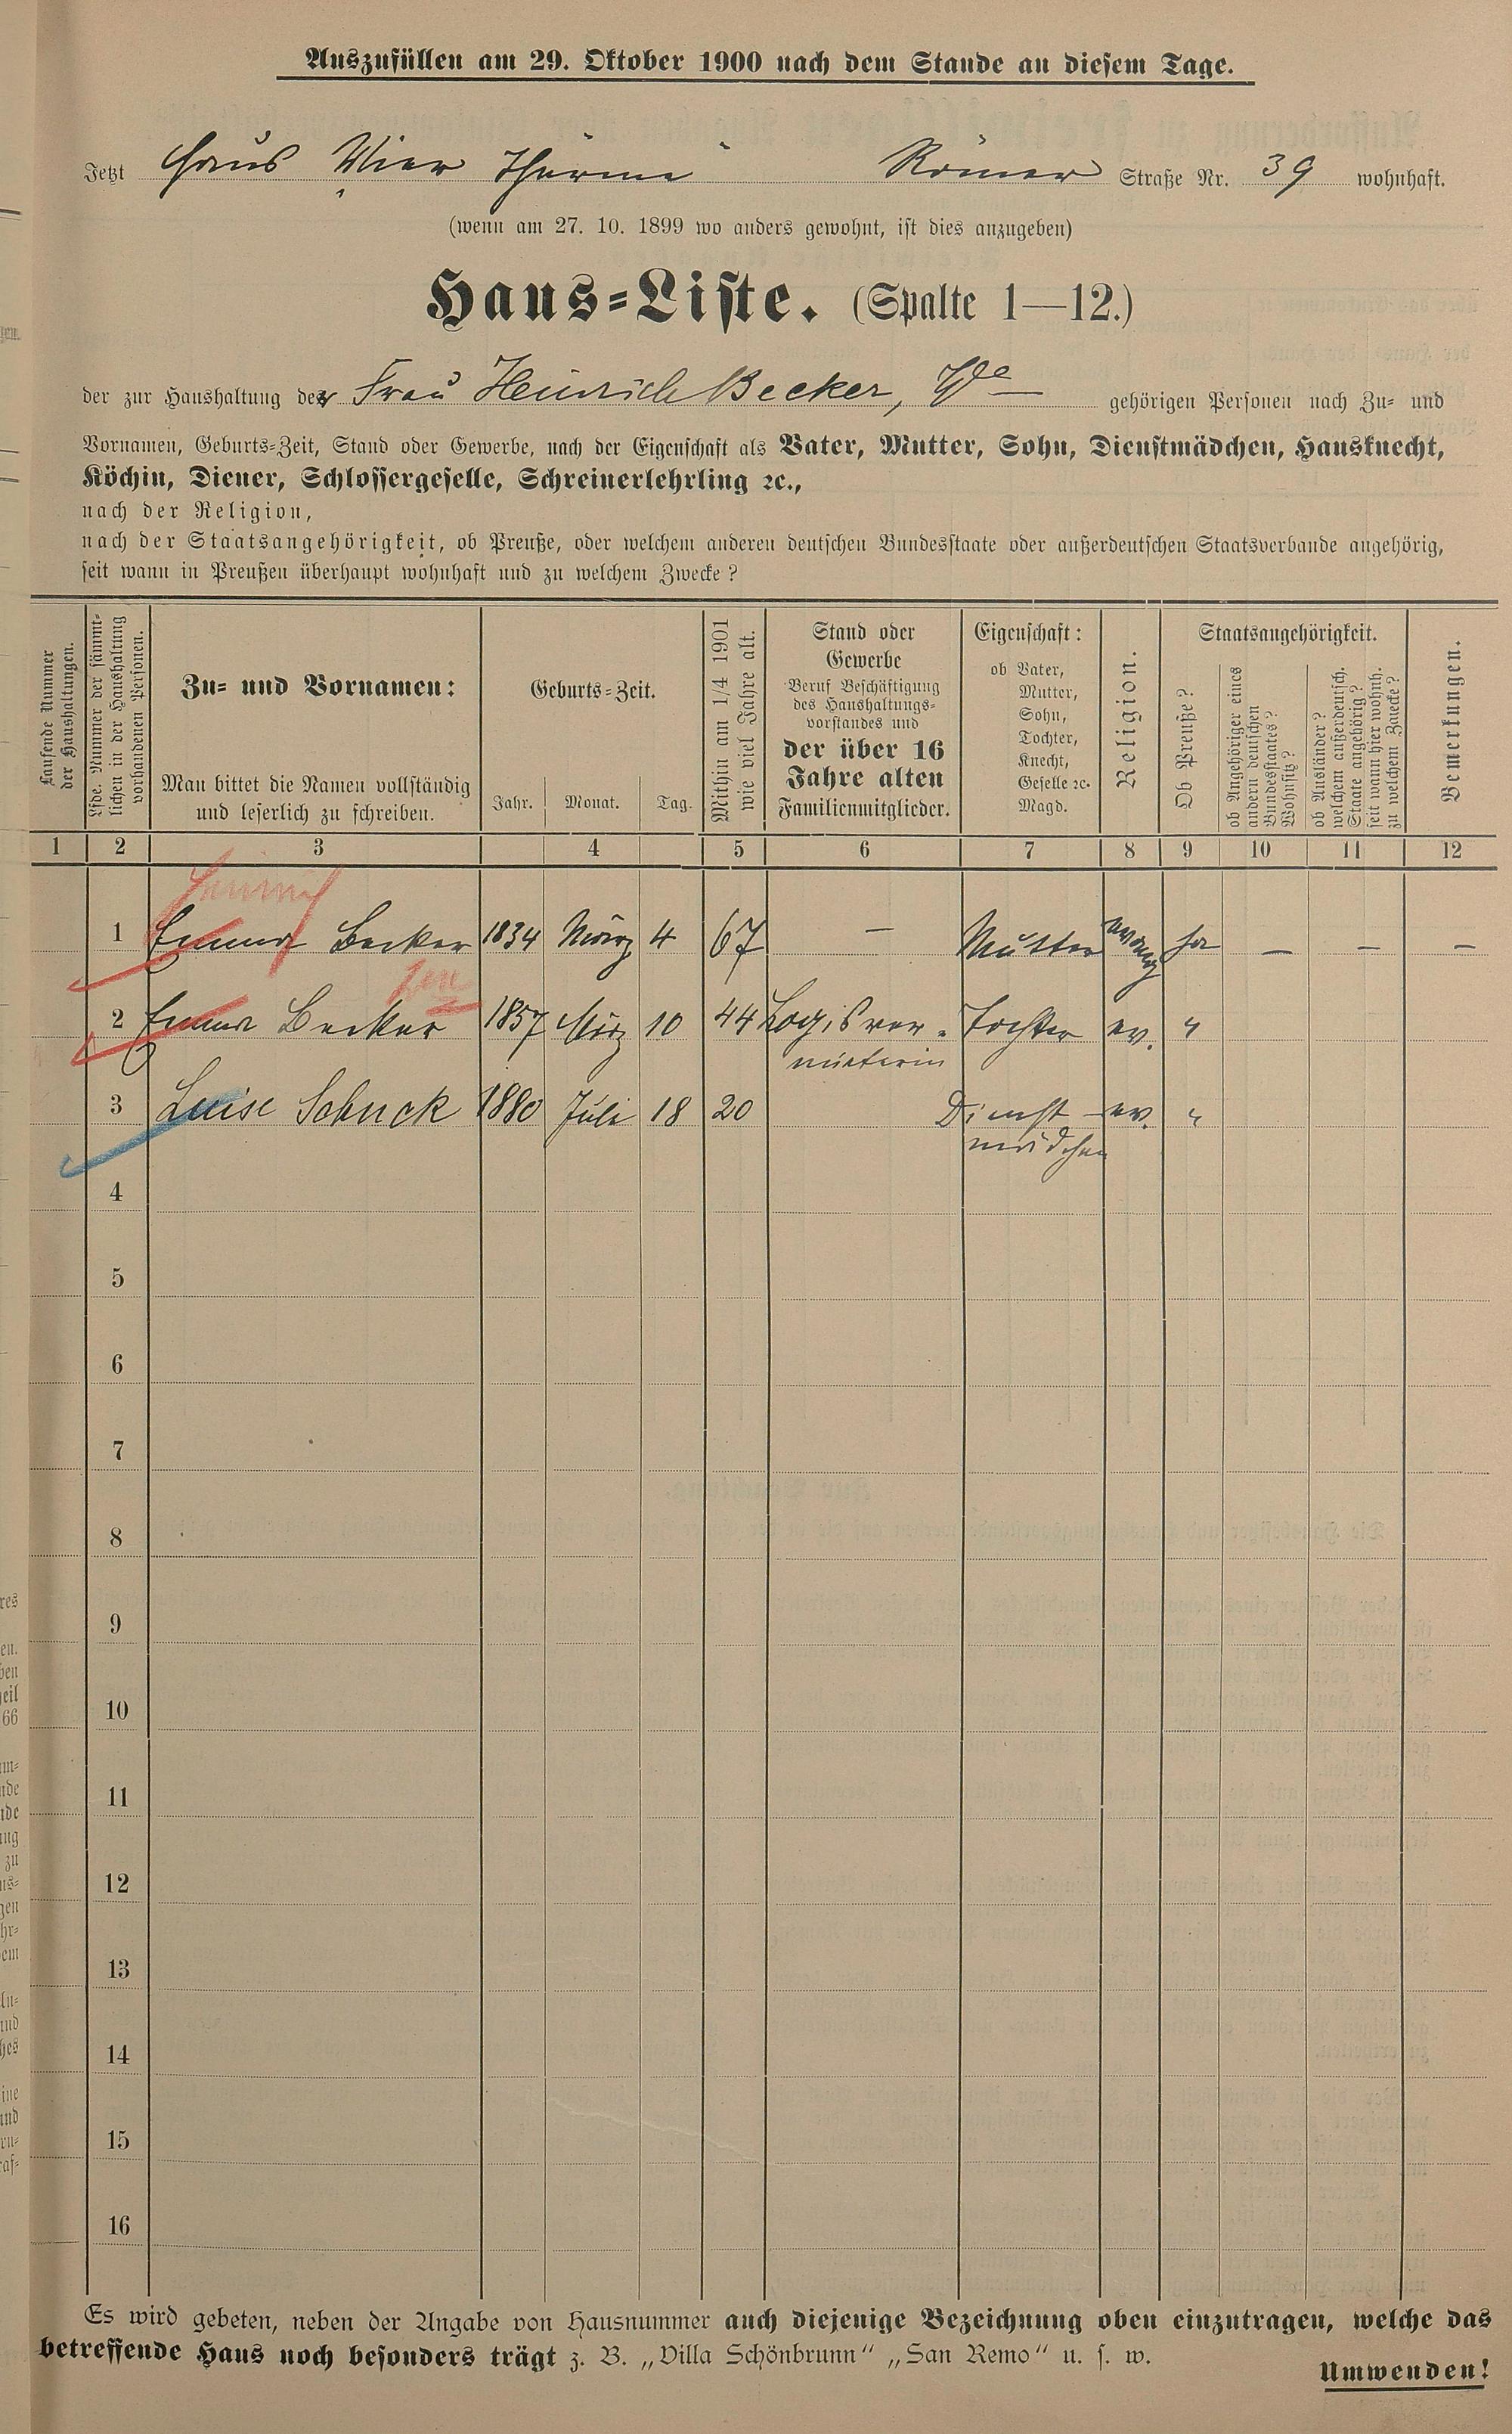 Auszufüllen am 29. Oktober 1900 nach dem Stande an diesem Tage.
Jetzt Haus Vier Thürme Römer Straße Nr. 39 wohnhaft.
(wenn am 27. 10. 1899 wo anders gewohnt, ist dies anzugeben)
Haus=Liste. (Spalte 1—12.)
der zur Haushaltung der Frau Heinrich Becker, Wwe gehörigen Personen nach Zu= und
Vornamen, Geburts=Zeit, Stand oder Gewerbe, nach der Eigenschaft als Vater, Mutter, Sohn, Dienstmädchen, Hausknecht,
Köchin, Diener, Schlossergeselle, Schreinerlehrling ꝛc.,
nach der Religion,
nach der Staatsangehörigkeit, ob Preuße, oder welchem anderen deutschen Bundesstaate oder außerdeutschen Staatsverbande angehörig,
seit wann in Preußen überhaupt wohnhaft und zu welchem Zwecke?
Laufende Nummer
der Haushaltungen.
Lfde. Nummer der sämmt-
lichen in der Haushaltung
vorhandenen Personen.
Zu= und Vornamen:
Man bittet die Namen vollständig
und leserlich zu schreiben.
Geburts=Zeit.
Jahr. Monat. Tag.
Mithin am 1/4 1901
wie viel Jahre alt.
Stand oder
Gewerbe
Beruf Beschäftigung
des Haushaltungs=
vorstandes und
der über 16
Jahre alten
Familienmitglieder.
Eigenschaft:
ob Vater,
Mutter,
Sohn,
Tochter,
Knecht,
Geselle ꝛc.
Magd.
Religion.
Staatsangehörigkeit.
Ob Preuße?
ob Angehöriger eines
andern deutschen
Bundesstaates?
Wohnsitz?
ob Ausländer?
welchem außerdeutsch.
Staate angehörig?
seit wann hier wohnh.
zu welchem Zwecke?
Bemerkungen.
1 2 3 4 5 6 7 8 9 10 11 12
Heinrich
1 Emma Becker 1834 März 4 67 — Mutter evang ja — — —
2 Emma Becker 1857 März 10 44 Logisver- Tochter ev. "
mieterin
3 Luise Schuck 1880 Juli 18 20 Dienst- ev. "
mädchen
4
5
6
7
8
9
10
11
12
13
14
15
16
Es wird gebeten, neben der Angabe von Hausnummer auch diejenige Bezeichnung oben einzutragen, welche das
betreffende Haus noch besonders trägt z. B. „Villa Schönbrunn“ „San Remo“ u. s. w.
Umwenden!